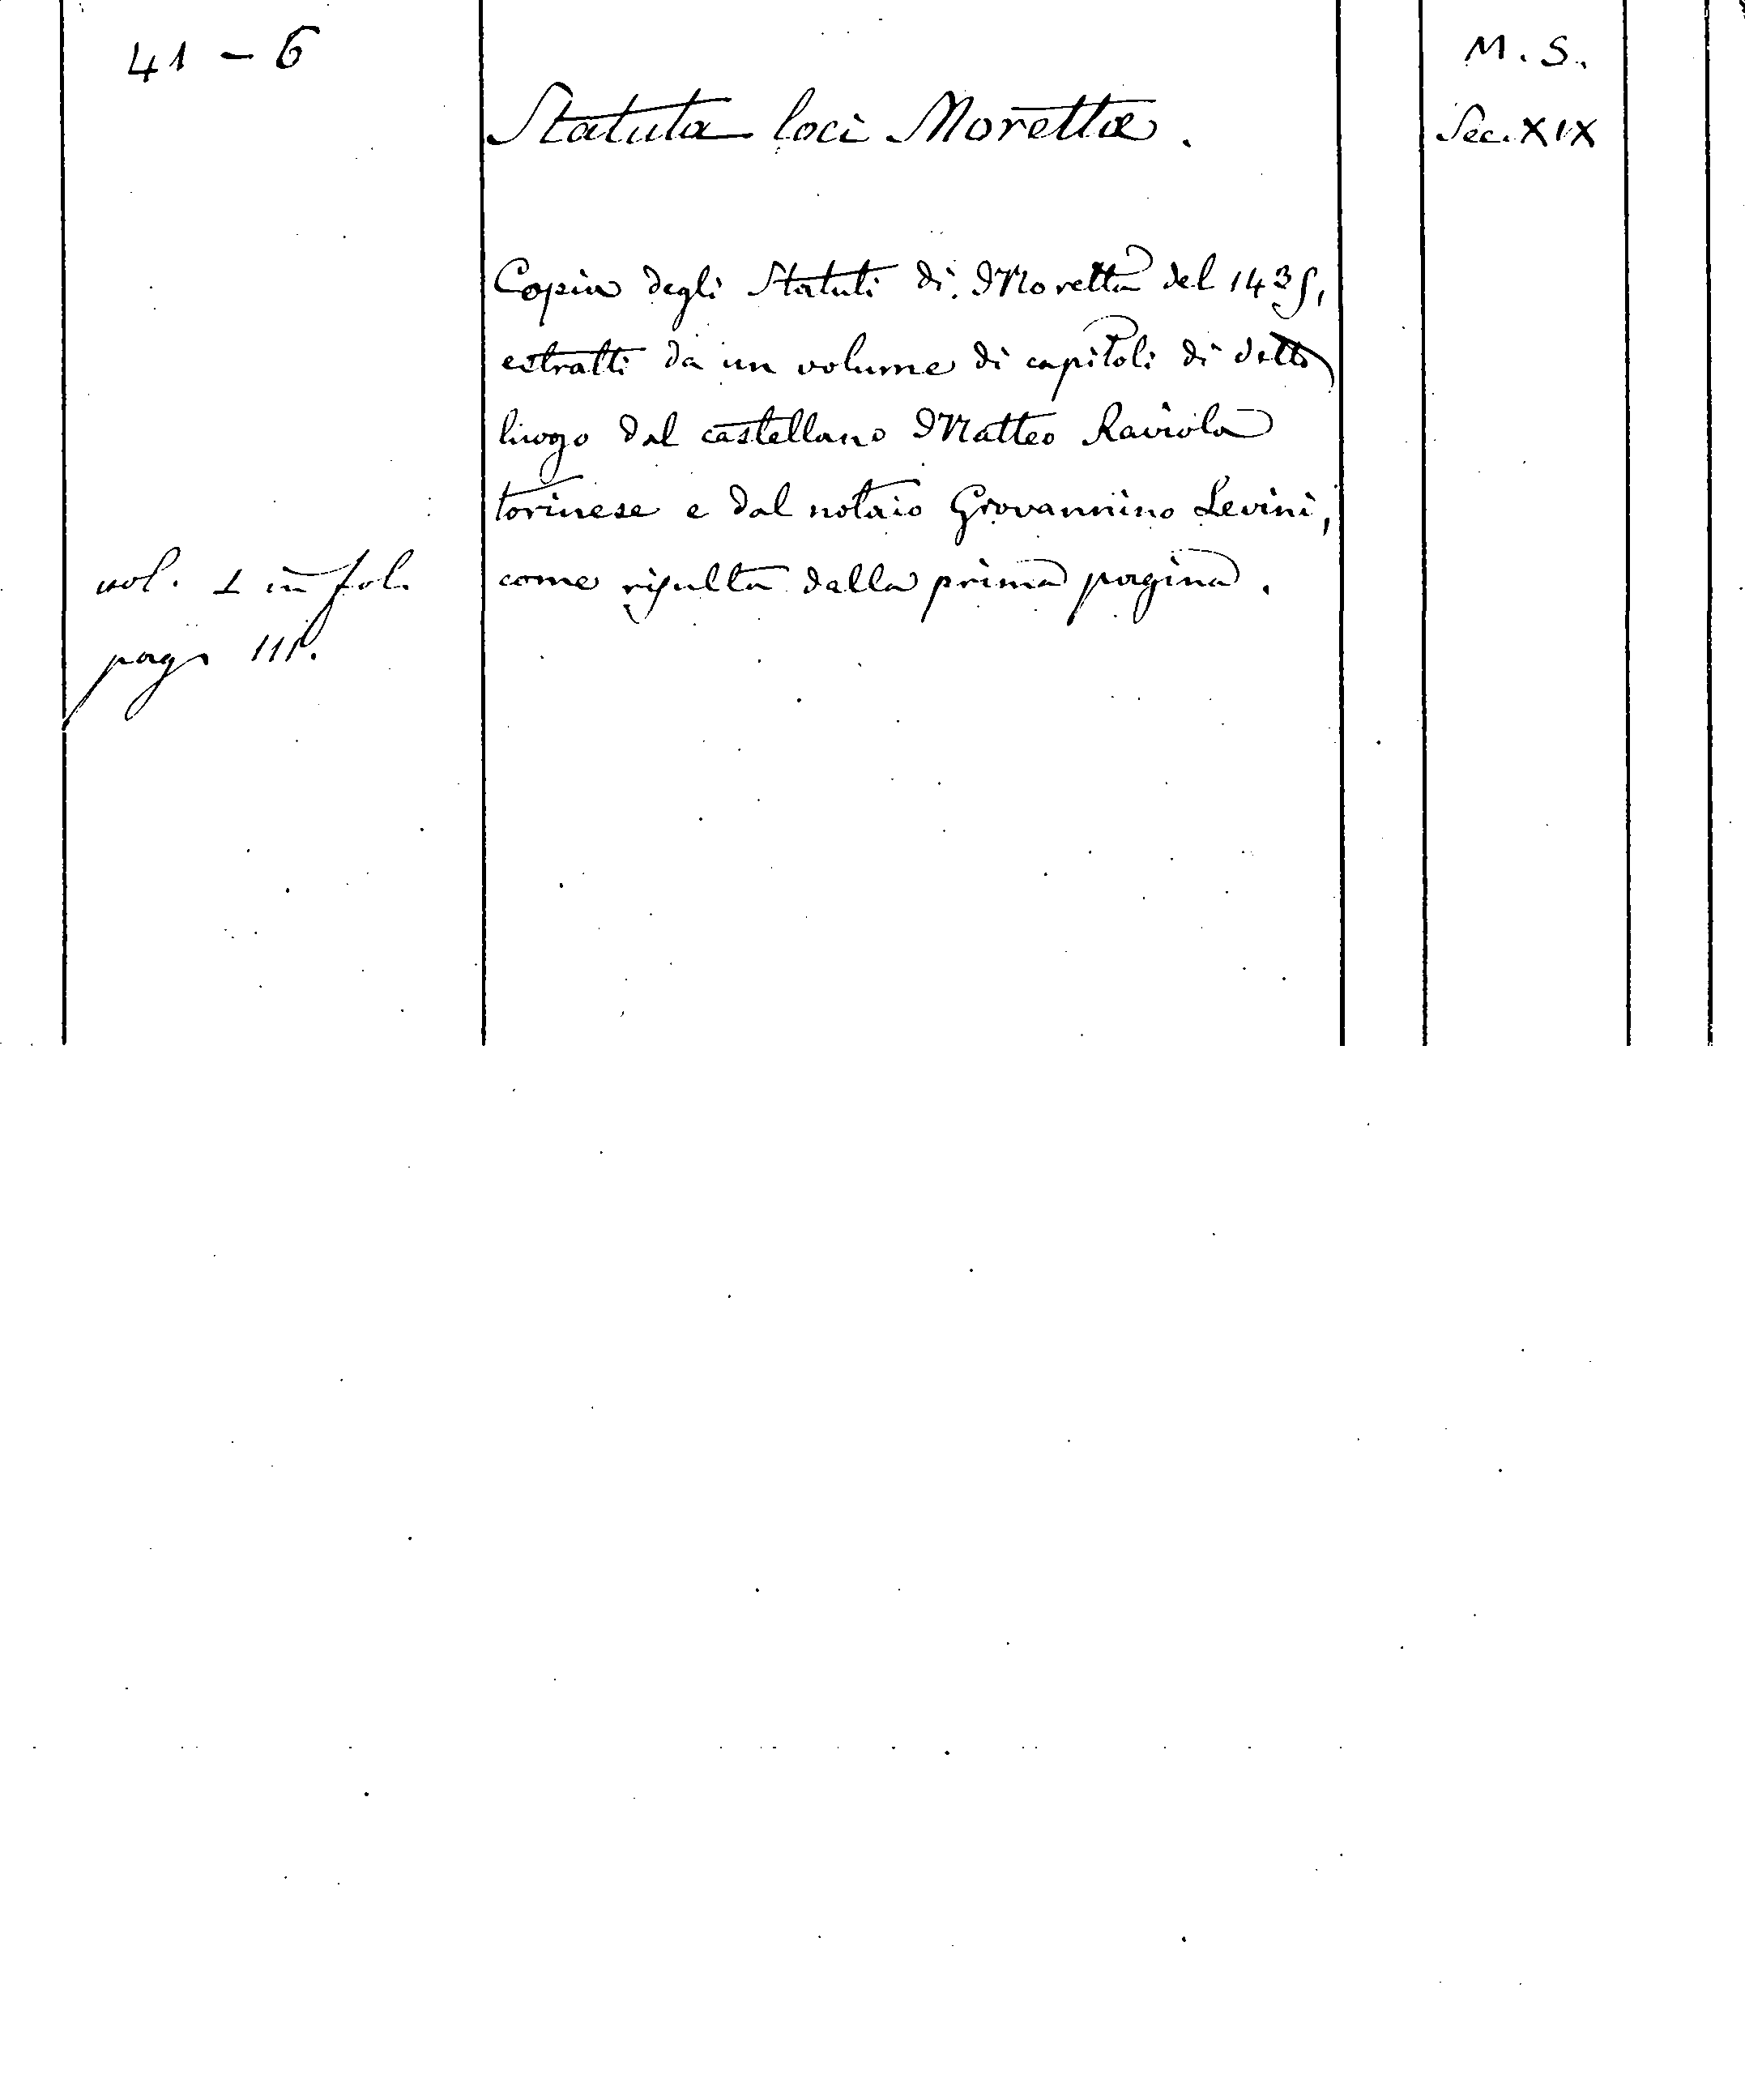 41 - 6
M. S.
Statuta loci Morettæ.
Sec. XIX
Copia degli Statuti di Moretta del 1435,
estratti da un volume di capitoli di detto
luogo dal castellano Matteo Raviola
torinese e dal notaio Giovannino Levini,
vol. 1 in fol.
come risulta dalla prima pagina.
pag. 111.